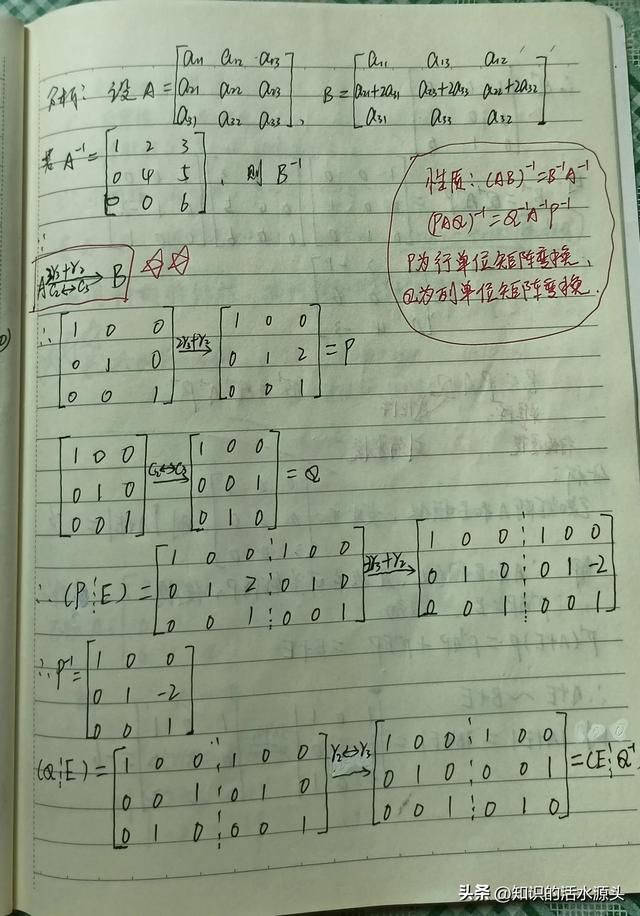 解析: 设 A = [a11 a12 a13; a21 a22 a23; a31 a32 a33], B = [a11 a13 a12; a21+2a31 a23+2a33 a22+2a32; a31 a33 a32]
A⁻¹ = [1 2 3; 0 4 5; 0 0 6], 则 B⁻¹
性质: (AB)⁻¹=B⁻¹A⁻¹
(PAQ)⁻¹=Q⁻¹A⁻¹P⁻¹
P为行单位矩阵变换、
Q为列单位矩阵变换.
∵
A 2r3+r2 C2↔C3 → B
∴ [1 0 0; 0 1 0; 0 0 1] 2r3+r3 → [1 0 0; 0 1 2; 0 0 1] = P
[1 0 0; 0 1 0; 0 0 1] C2↔C3 → [1 0 0; 0 0 1; 0 1 0] = Q
∴ (P⋮E) = [1 0 0 ⋮ 1 0 0; 0 1 2 ⋮ 0 1 0; 0 0 1 ⋮ 0 0 1] 2r3+r2 → [1 0 0 ⋮ 1 0 0; 0 1 0 ⋮ 0 1 -2; 0 0 1 ⋮ 0 0 1]
∴ P⁻¹ = [1 0 0; 0 1 -2; 0 0 1]
(Q⋮E) = [1 0 0 ⋮ 1 0 0; 0 0 1 ⋮ 0 1 0; 0 1 0 ⋮ 0 0 1] r2↔r3 → [1 0 0 ⋮ 1 0 0; 0 1 0 ⋮ 0 0 1; 0 0 1 ⋮ 0 1 0] = (E⋮Q⁻¹
头条 @知识的活水源头